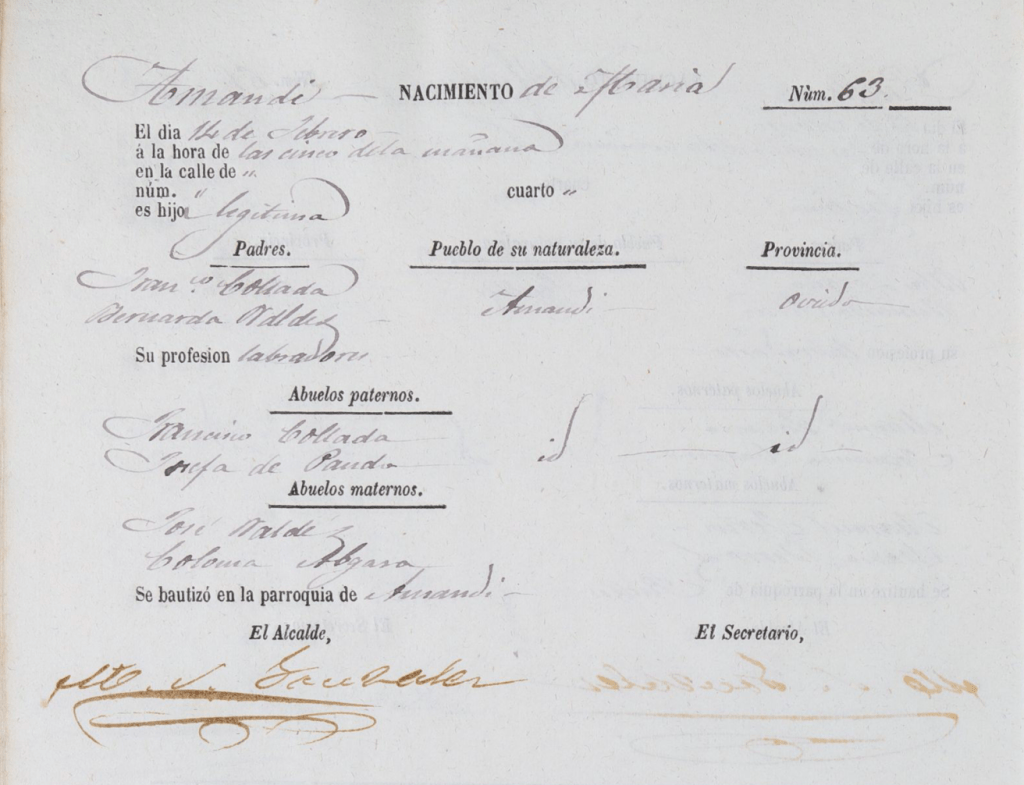 Amandi — NACIMIENTO de Maria Núm. 63.
El dia 14 de Febrero
á la hora de las cinco dela mañana
en la calle de "
núm. " cuarto "
es hijo legitima
Padres. Pueblo de su naturaleza. Provincia.
Fran.co Collada
Bernarda Valdez — Amandi — Oviedo
Su profesion labradores
Abuelos paternos.
Francisco Collada
id — id
Josefa de Pando
Abuelos maternos.
José Valdéz
Coloma
Se bautizó en la parroquia de Amandi —
El Alcalde, El Secretario,